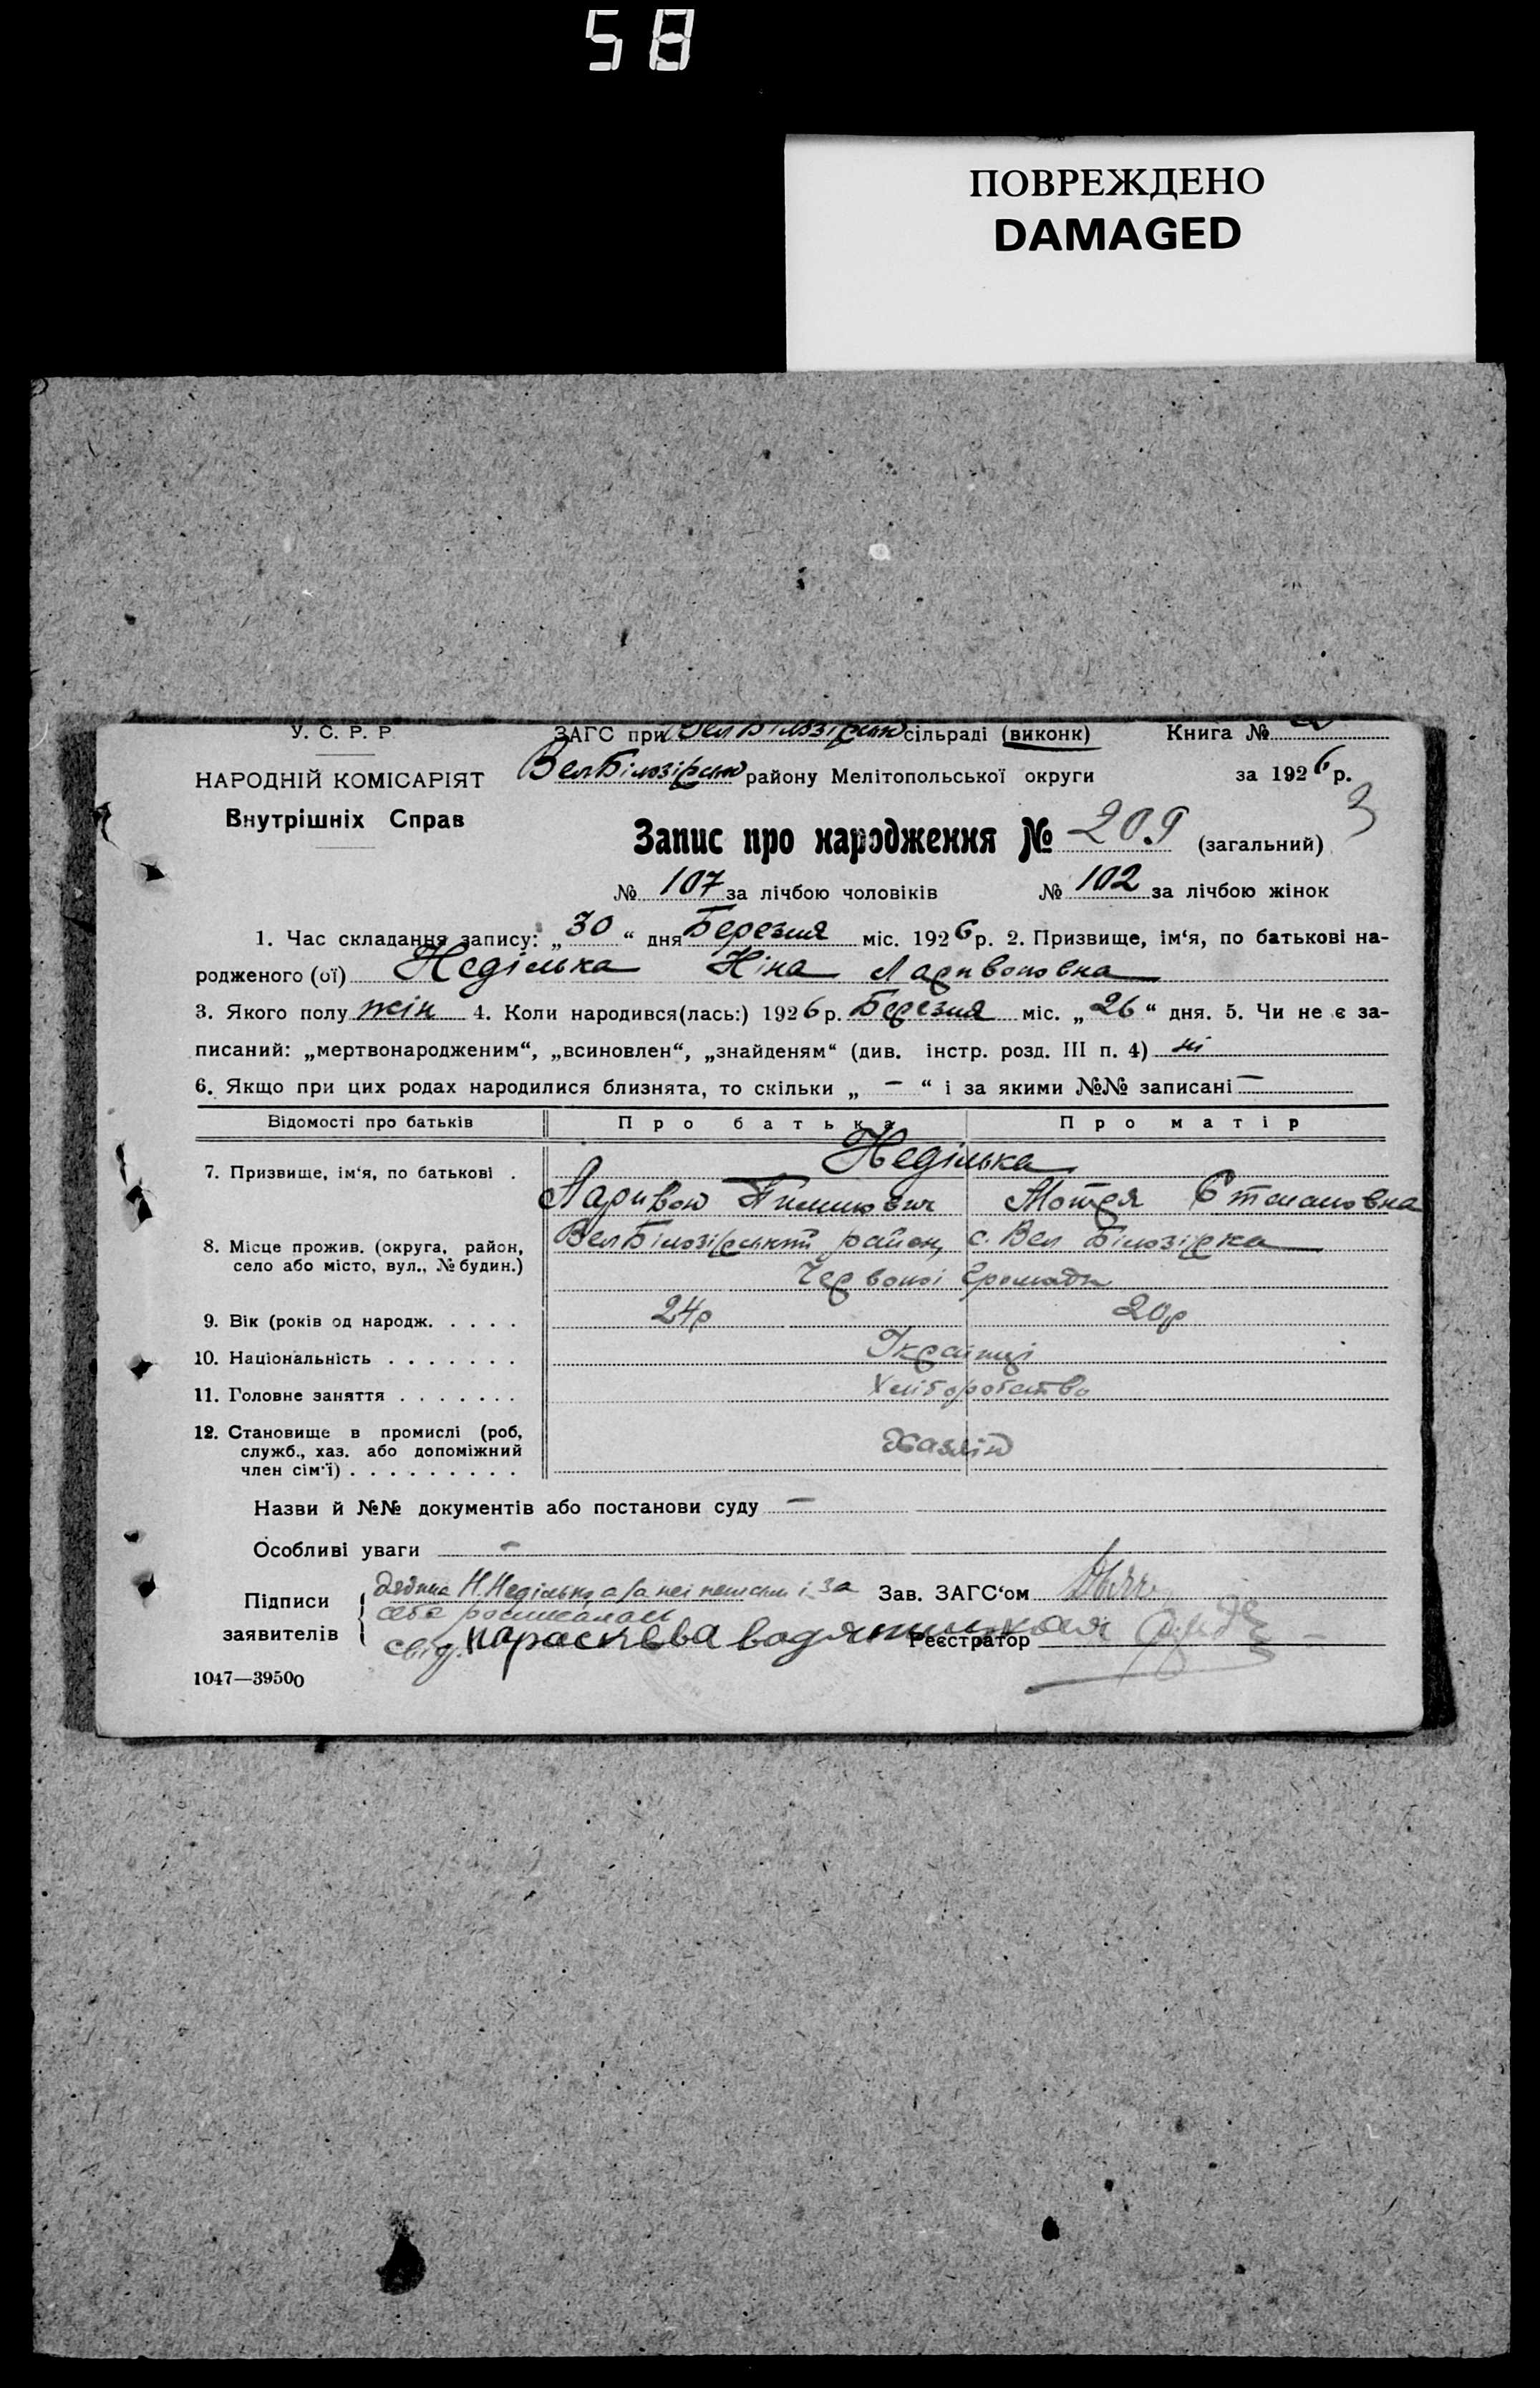 58
ПОВРЕЖДЕНО
DAMAGED
У. С. Р. Р. ЗАГС при ВелБілозірськ сільраді (виконк) Книга №
НАРОДНІЙ КОМІСАРІЯТ ВелБілозірськ району Мелітопольської округи за 1926 р.
Внутрішніх Справ
3
Запис про народження № 209 (загальний)
№ 107 за лічбою чоловіків № 102 за лічбою жінок
1. Час складання запису: „30“ дня Березня міс. 1926 р. 2. Призвище, ім‘я, по батькові на-
родженого (ої) Неділька Ніна Ларивоновна
3. Якого полу жін 4. Коли народився(лась:) 1926 р. Березня міс. „26“ дня. 5. Чи не є за-
писаний: „мертвонародженим“, „всиновлен“, „знайденям“ (див. інстр. розд. III п. 4) ні
6. Якщо при цих родах народилися близнята, то скільки „ — “ і за якими №№ записані —
Відомості про батьків Про батька Про матір
Неділька
7. Призвище, ім‘я, по батькові .
Ларивон Мотря Степановна
8. Місце прожив. (округа, район, ВелБілозірський район, с. Вел Білозірка
село або місто, вул., № будин.)
Червоної Громади
9. Вік (років од народж. . . . . 24р 20р
10. Національність . . . . . . . Українці
11. Головне заняття . . . . . . . Хліборобство
12. Становище в промислі (роб,
служб., хаз. або допоміжний Хазяїн
член сім‘ї) . . . . . . . . .
Назви й №№ документів або постанови суду —
Особливі уваги —
Підписи Н. Неділько, а за неї і за Зав. ЗАГС‘ом
себе
заявителів свід. параскева Реєстратор
1047—39500